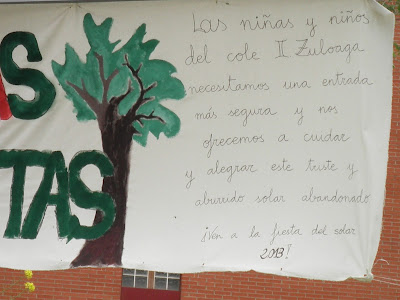 AS
TAS
Las niñas y niños
del cole II Zuloaga
necesitamos una entrada
más segura y nos
ofrecemos a cuidar
y alegrar este triste y
aburrido solar abandonado
¡Ven a la fiesta del solar
2013!